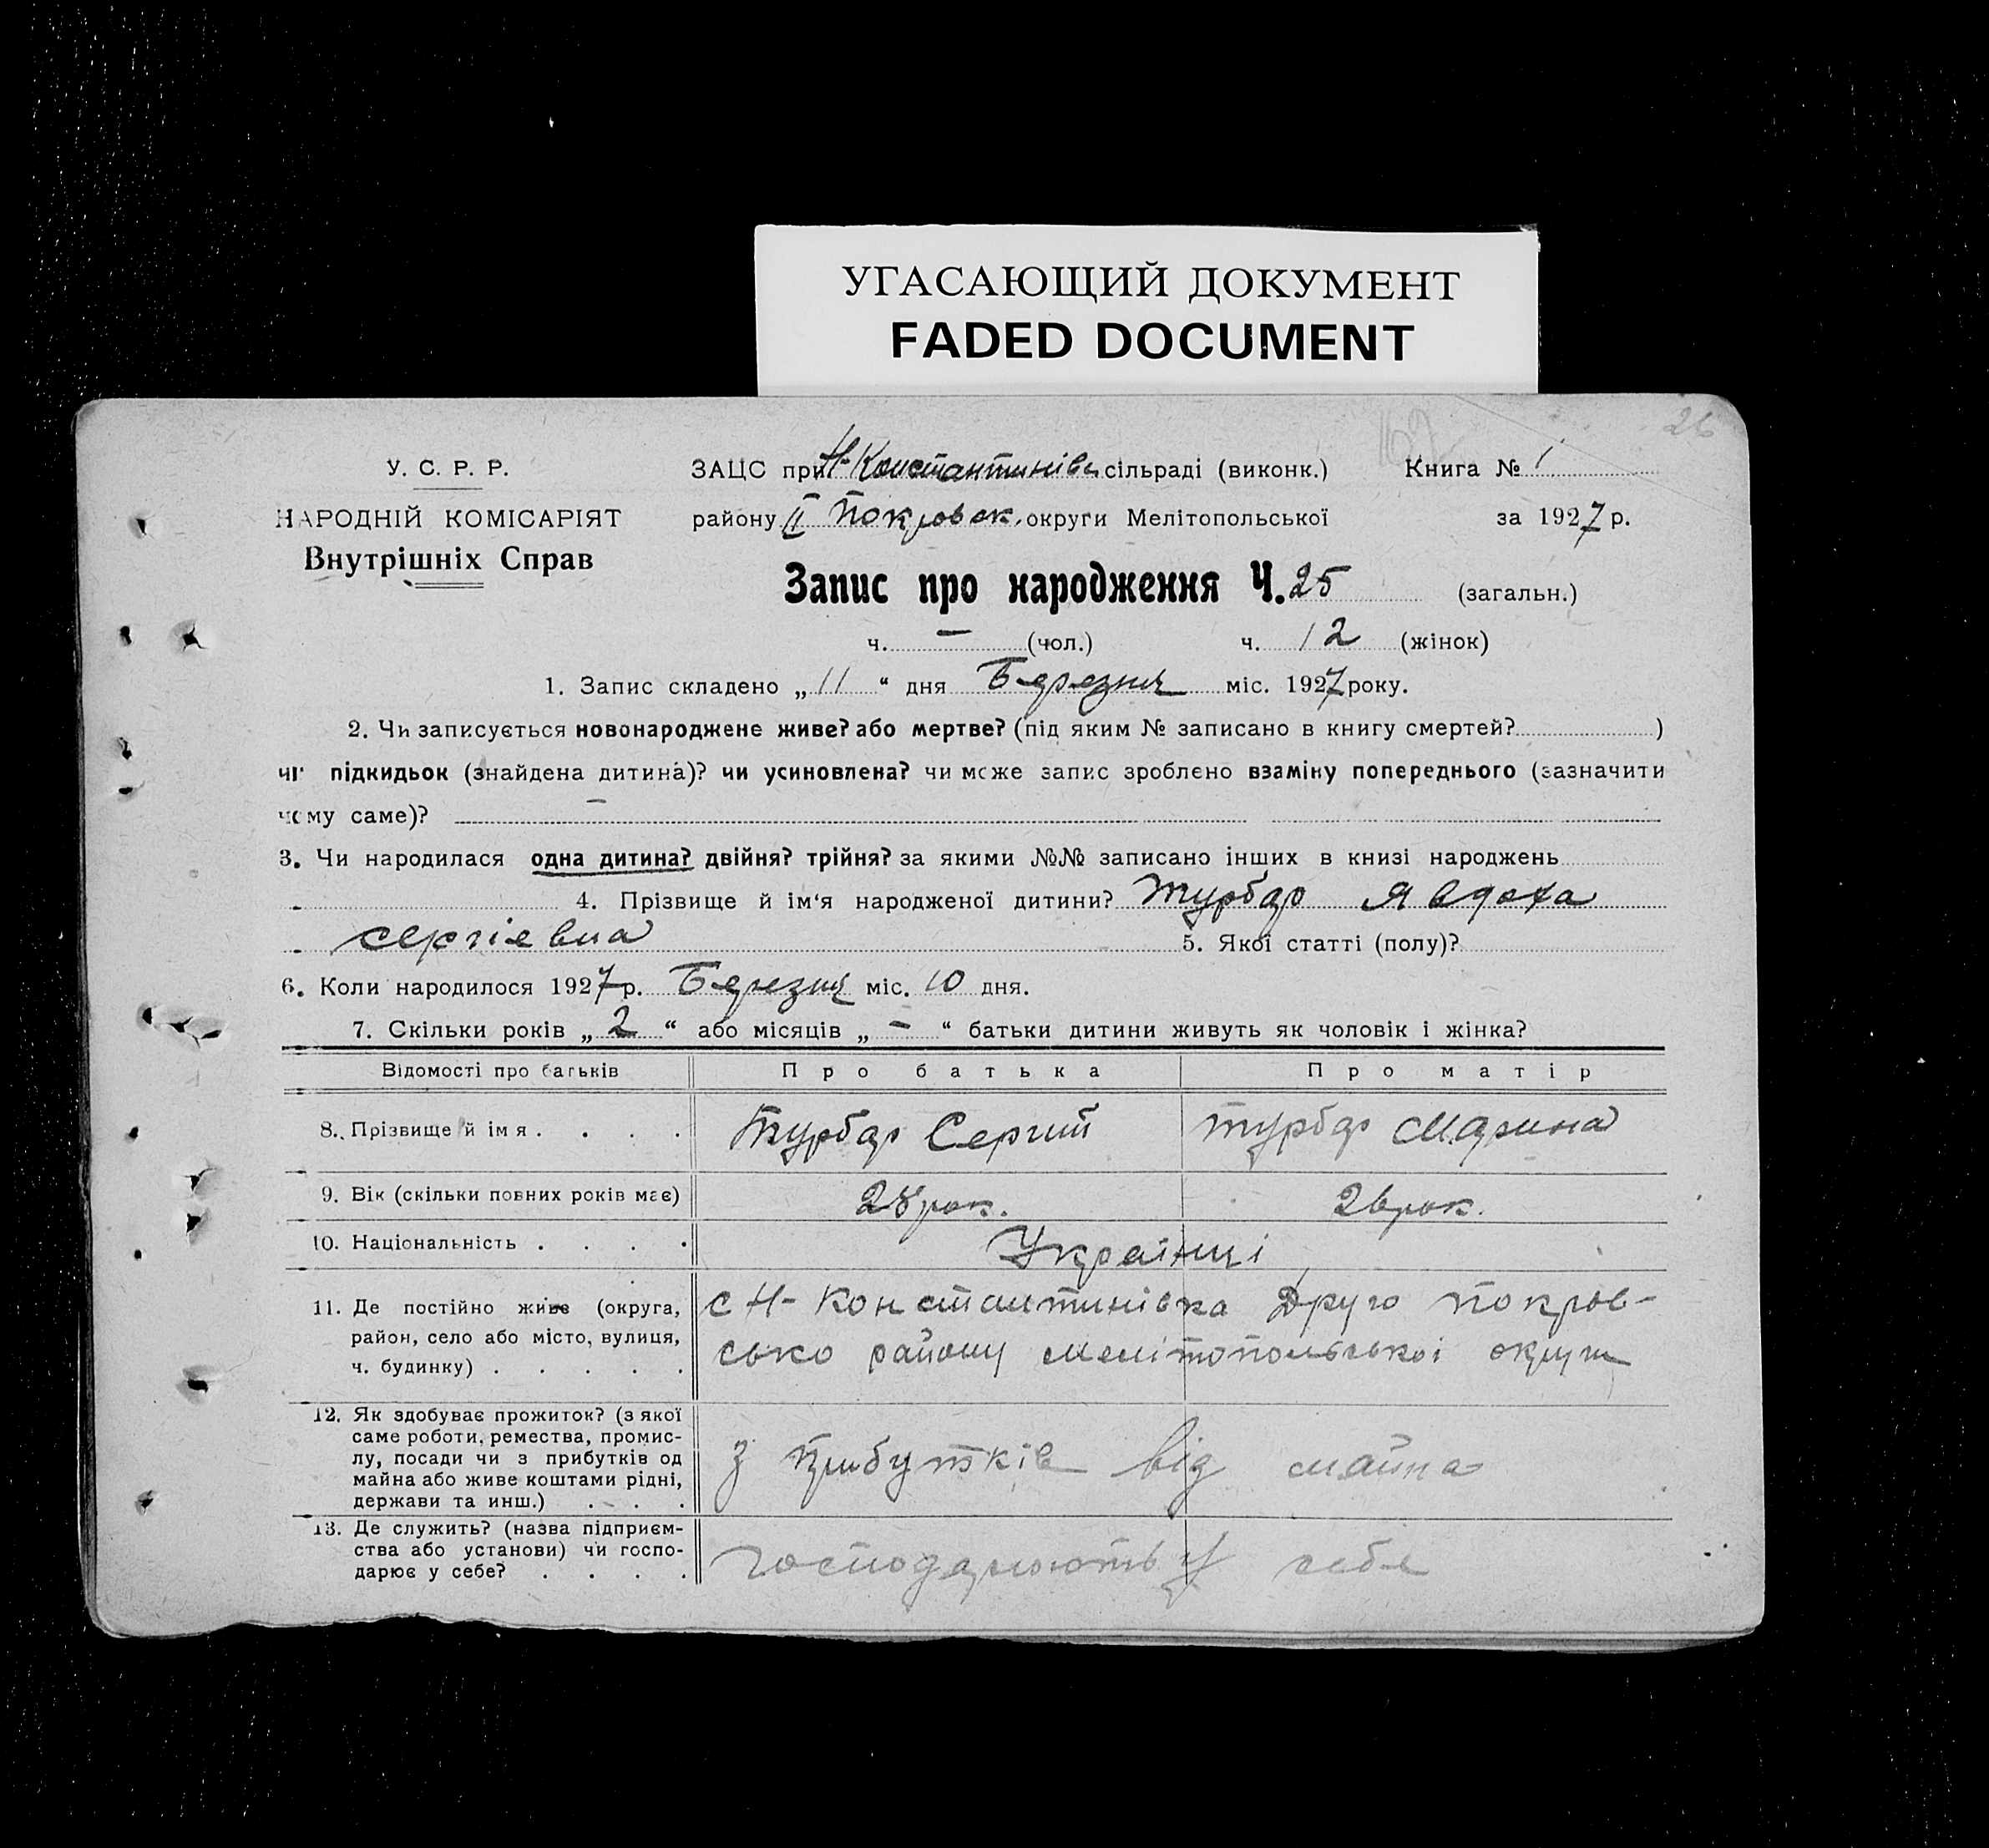 УГАСАЮЩИЙ ДОКУМЕНТ
FADED DOCUMENT
26
У. С. Р. Р.
НАРОДНІЙ КОМІСАРІЯТ
Внутрішніх Справ
ЗАЦС при Н-Константинівц сільраді (виконк.)
Книга № 1
району II Покровськ. округи Мелітопольської
за 1927 р.
Запис про народження Ч. 25 (загальн.)
ч. — (чол.) ч. 12 (жінок)
1. Запис складено „11“ дня Березня міс. 1927 року.
2. Чи записується новонароджене живе? або мертве? (під яким № записано в книгу смертей? )
чи підкидьок (знайдена дитина)? чи усиновлена? чи може запис зроблено взаміну попереднього (зазначити
чому саме)? —
3. Чи народилася одна дитина? двійня? трійня? за якими №№ записано інших в книзі народжень
4. Прізвище й ім'я народженої дитини? Турбар Явдоха
Сергіевна 5. Якої статті (полу)?
6. Коли народилося 1927 р. Березня міс. 10 дня.
7. Скільки років „2“ або місяців „—“ батьки дитини живуть як чоловік і жінка?
Відомості про батьків Про батька Про матір
8. Прізвище й імя . . . . Турбар Сергий Турбар Марина
9. Вік (скільки повних років має) 28 рок. 26 рок.
10. Національність . . . . Українці
11. Де постійно живе (округа,
район, село або місто, вулиця,
ч. будинку) . . . . .
с Н-Константинівка Друго Покров-
сько району Мелітопольської округи
12. Як здобуває прожиток? (з якої
саме роботи, ремества, промис-
лу, посади чи з прибутків од
майна або живе коштами рідні,
держави та инш.) . . .
з прибутків від майна
13. Де служить? (назва підприєм-
ства або установи) чи госпо-
дарює у себе? . . . .
господарюють у себе